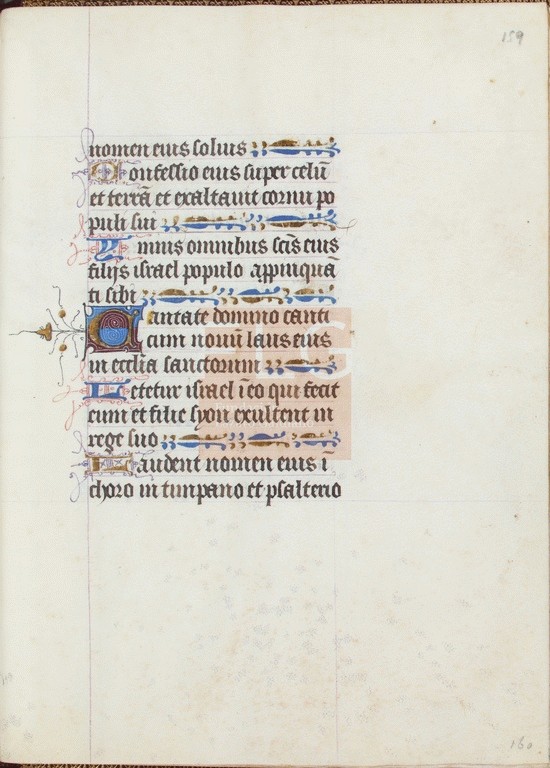 159
nomen eius solius
Confessio eius super celū
et terrā et exaltauit cornu po
puli sui
Ymnus omnibus scīs eius
filijs israel populo appinquā
ti sibi
Cantate domino canti
cum nouū laus eius
in ecclīa sanctorum
Letetur israel ī eo qui fecit
eum et filie syon exultent in
rege suo
Laudent nomen eius ī
choro in timpano et psalterio
160